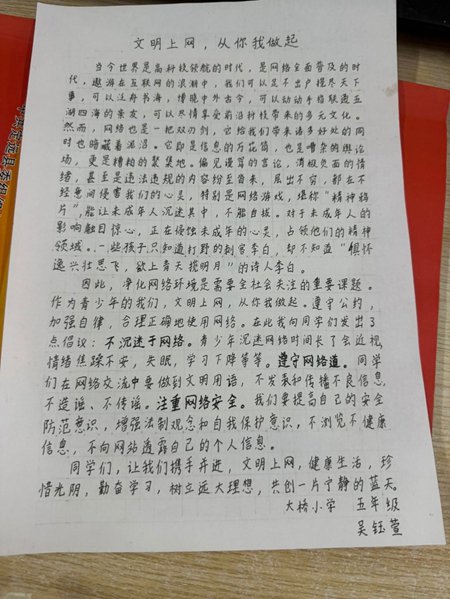 文明上网，从你我做起
当今世界是高科技领航的时代，是网络全面普及的时
代，遨游在互联网的浪潮中，我们可以足不出户揽尽天下
事，可以泛舟书海，博晓中外古今，可以动动手指联通五
湖四海的亲友，可以尽情享受前沿科技带来的多元文化。
然而，网络也是一把双刃剑，它给我们带来诸多好处的同
时也暗藏着泥沼。它即是信息的万花筒，也是嘈杂的舆论
场，更是糟粕的聚集地。偏见谩骂的言论，消极负面的情
绪，甚至是违法违规的内容纷至沓来，层出不穷，都在不
经意间侵害我们的心灵，特别是网络游戏，堪称“精神鸦
片”，能让未成年人沉迷其中，不能自拔。对于未成年人的
影响触目惊心，正在侵蚀未成年的心灵，占领他们的精神
领域。一些孩子只知道打野的刺客李白，却不知道“俱怀
逸兴壮思飞，欲上青天揽明月”的诗人李白。
因此，净化网络环境是需要全社会关注的重要课题。
作为青少年的我们，文明上网，从你我做起。遵守公约，
加强自律，合理正确地使用网络。在此我向同学们发出3
点倡议：不沉迷于网络。青少年沉迷网络时间长了会近视，
情绪焦躁不安，失眠，学习下降等等。遵守网络道。同学
们在网络交流中要做到文明用语，不发表和传播不良信息，
不造谣、不传谣。注重网络安全。我们要提高自己的安全
防范意识，增强法制观念和自我保护意识，不浏览不健康
信息，不向网站透露自己的个人信息。
同学们，让我们携手并进，文明上网，健康生活，珍
惜光阴，勤奋学习，树立远大理想，共创一片宁静的蓝天。
大桥小学 五年级
吴钰萱